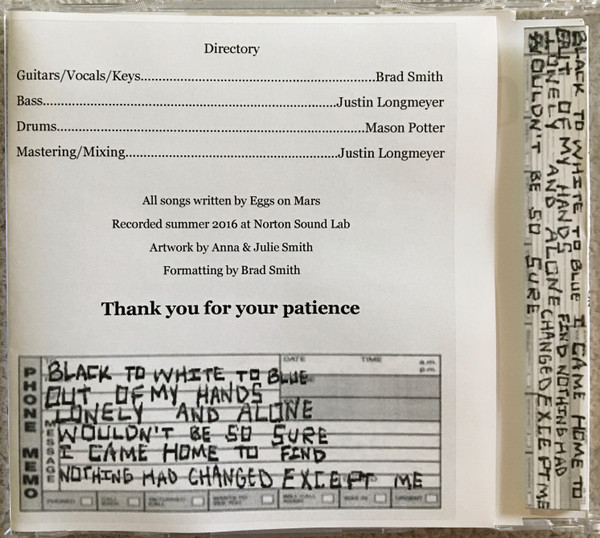 Directory
Guitars/Vocals/Keys.......................................................................Brad Smith
Bass.........................................................................................Justin Longmeyer
Drums.............................................................................................Mason Potter
Mastering/Mixing................................................................Justin Longmeyer
All songs written by Eggs on Mars
Recorded summer 2016 at Norton Sound Lab
Artwork by Anna & Julie Smith
Formatting by Brad Smith
Thank you for your patience
PHONE MEMO
MESSAGE
DATE TIME a.m.
p.m.
BLACK TO WHITE TO BLUE
OUT OF MY HANDS
LONELY AND ALONE
WOULDN'T BE SO SURE
I CAME HOME TO FIND
NOTHING HAD CHANGED EXCEPT ME
PHONED CALL BACK RETURNED CALL WANTS TO SEE YOU WILL CALL AGAIN WAS IN URGENT
BLACK TO WHITE TO BLUE I CAME HOME TO
OUT OF MY HANDS FIND NOTHING HAD
LONELY AND ALONE CHANGED EXCEPT ME
WOULDN'T BE SO SURE